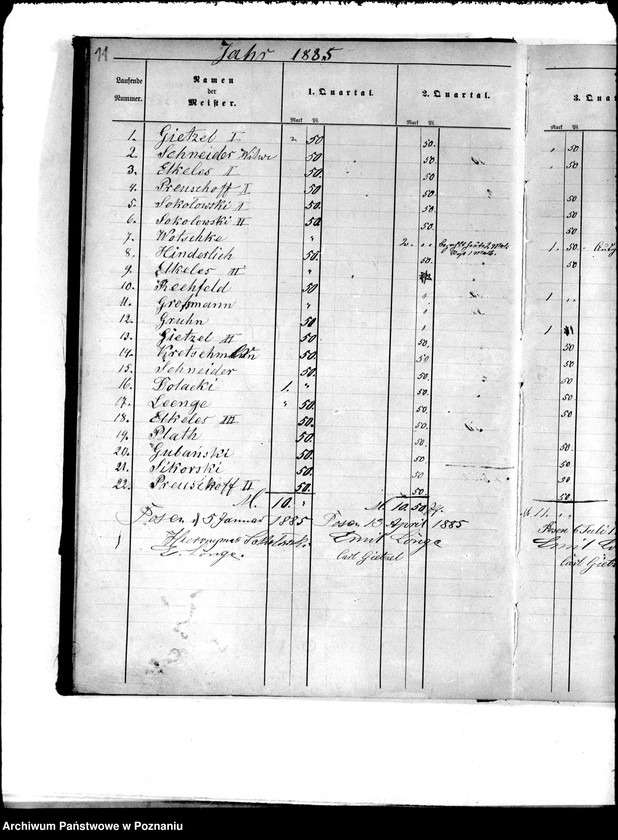 11
Jahr 1885
Laufende Nummer.
Namen der Meister.
1. Quartal.
2. Quartal.
3. Qua
Mark Pf.
Mark Pf.
Mark Pf.
1. Gietzel I 50 50. 50
2. Schneider Witwe 50 50. 50
3. Elkeles I 50 50
4. Preuschoff I 50 50. 50
5. Sokolowski I 50. 50. 50
6. Sokolowski II 50. 50. 50
7. Wotschke " 2. " 1. 50
8. Hinderlich 50 50. 50
9. Elkeles II "
10. Rechfeld 50
11. Großmann " 1
12. Gruhn 50 1
13. Gietzel II 50 50. 50
14. Kretschmann 50. 50. 50
15. Schneider 50. 50. 50
16. Dolacki 1. " 50. 50
17. Loenge " 50. 50. 50
18. Elkeles III 50. 50.
19. Plath 50. 50. 50
20. Gubański 50. 50. 50
21. Sikorski 50. 50. 50
22. Preuschoff II 50. 50. 50
M. 10. " M. 10. 50 Pf. M 11. "
Posen d 5 Januar 1885
Posen 13 April 1885
Posen 6 Juli 1
Hieronymus
E. Lönge.
Emil Lönge
Carl Gietzel
Emil Lö
Carl Gietz
Archiwum Państwowe w Poznaniu